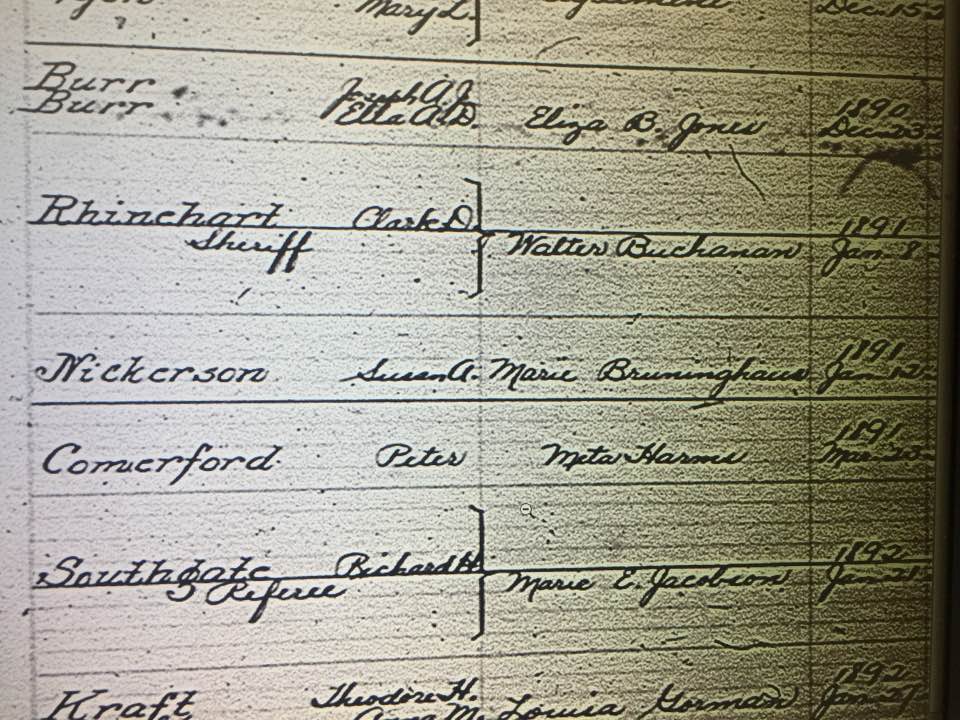 Mary L.
Dec. 15
Burr Joseph A. J.
Burr Etta A. D. Eliza B. Jones 1890 Dec. 23
Rhinehart Clark D. 1891
Sheriff Walter Buchanan Jan. 8
1891
Nickerson Susan A. Marie Bruninghaus Jan. 12
1891
Comerford Peter Meta Harms Mar. 23
1892
Southgate Richard H. Marie E. Jacobson Jan. 21
Referee
1892
Kraft Theodore H. Louisa Gorman Jan.
Anna M.